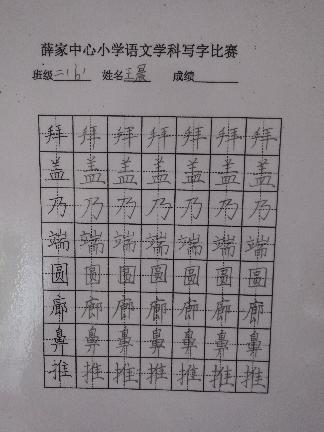 薛家中心小学语文学科写字比赛
班级 姓名王 成绩
拜拜拜拜拜拜拜
盖盖盖盖盖盖盖
乃乃乃乃乃乃乃
端端端端端端端
圆圆圆圆圆圆圆
廊廊廊廊廊廊廊
鼻鼻鼻鼻鼻鼻鼻
推推推推推推推